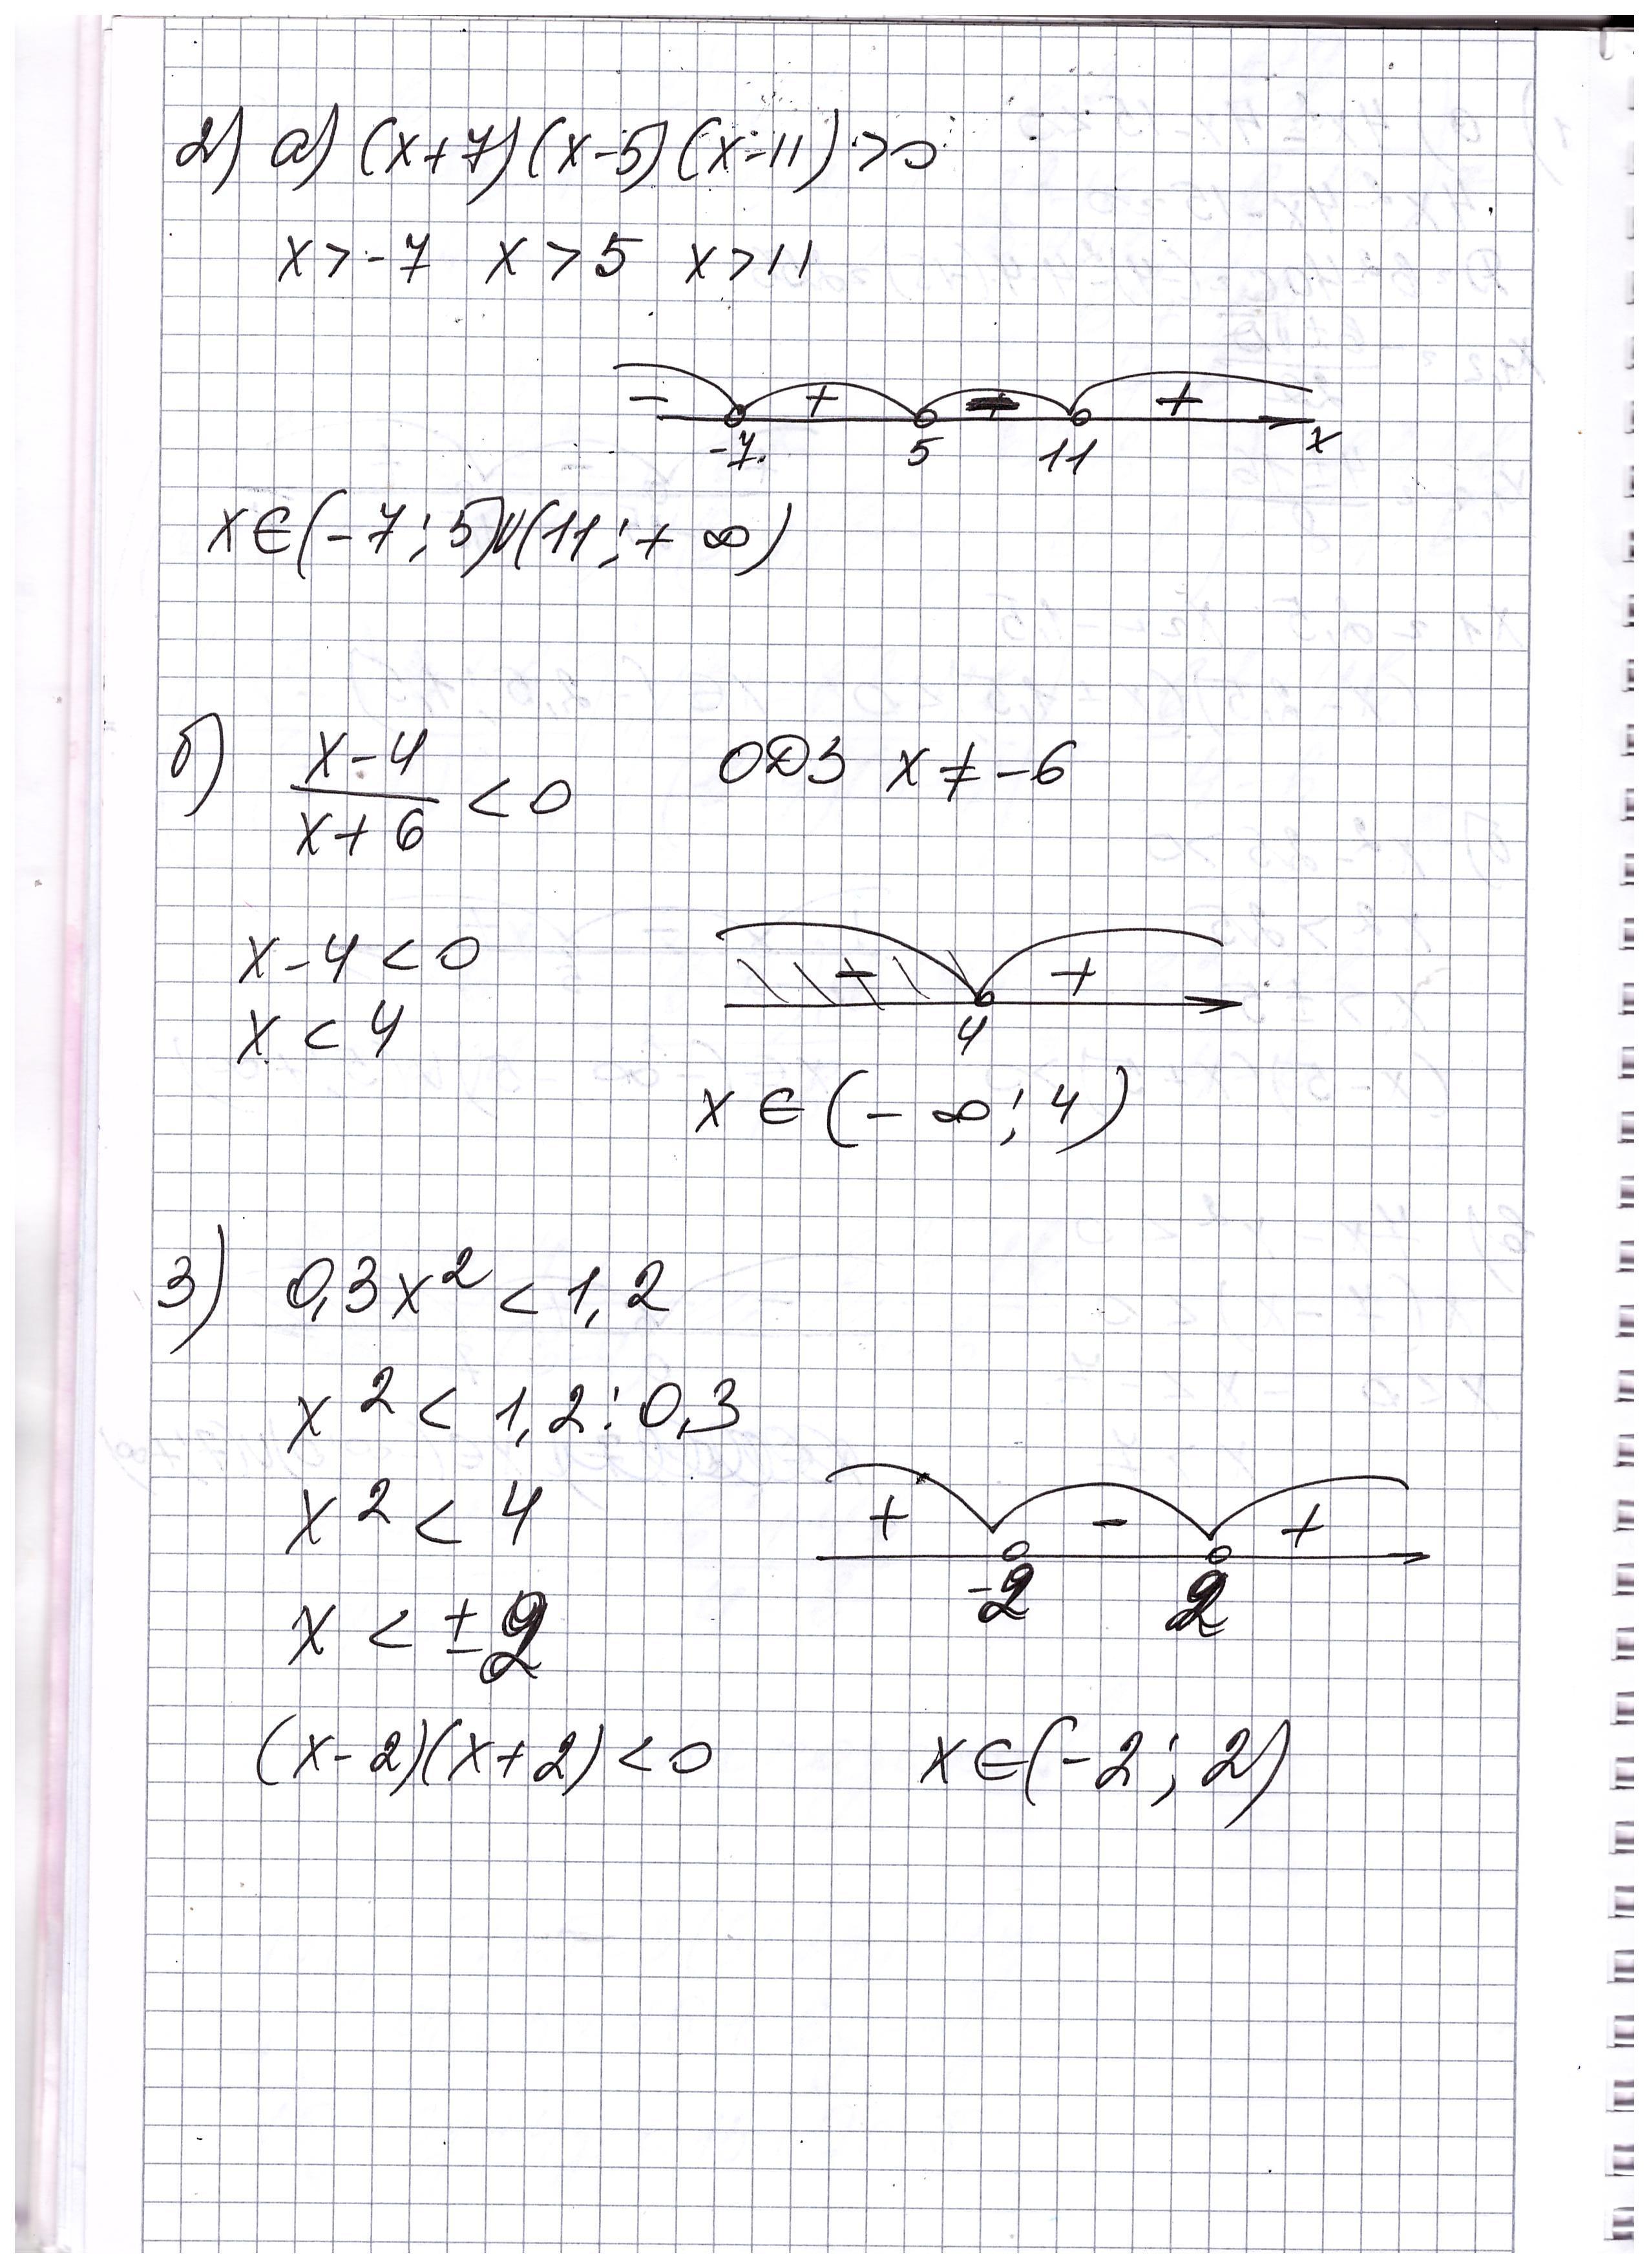 2) а) (x+7)(x-5)(x-11)>0
x>-7 x>5 x>11
- + - +
-7 5 11 x
x∈(-7;5)∪(11;+∞)
б) (x-4)/(x+6) <0 ОДЗ x≠-6
x-4<0
- +
x<4
4
x∈(-∞;4)
3) 0,3x²<1,2
x²<1,2:0,3
x²<4
+ - +
-2 2
x<±2
(x-2)(x+2)<0 x∈(-2;2)